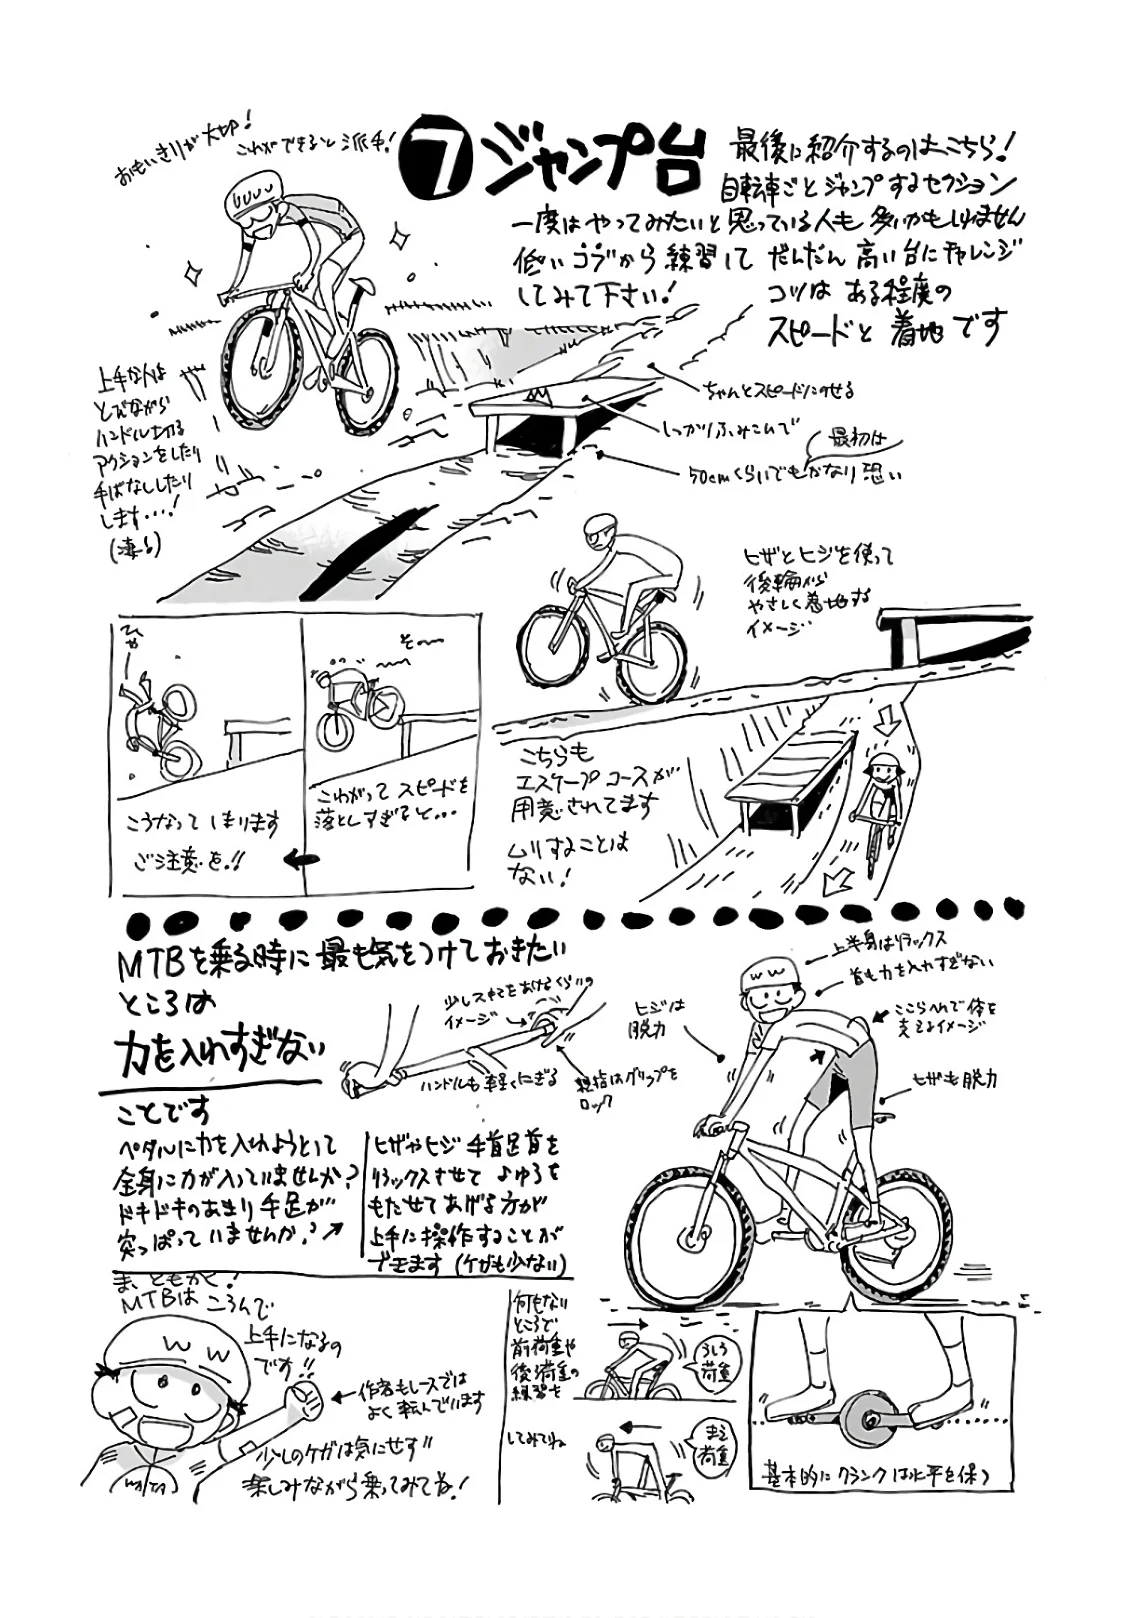 おもいきりが大切!
これができると派手!
7 ジャンプ台
最後に紹介するのはこちら!
自転車ごとジャンプするセクション
一度はやってみたいと思っている人も多いかもしれません
低いコブから練習して だんだん高い台にチャレンジ
してみて下さい!
コツは ある程度の
スピードと着地です
上手な人は
とびながら
ハンドル切る
アクションをしたり
手ばなししたり
します・・・!
(凄る)
ちゃんとスピードにのせる
しっかりふみこんで
最初は
50cmくらいでもかなり恐い
ヒザとヒジを使って
後輪から
やさしく着地する
イメージ
そ〜〜
こわがって スピードを
落としすぎると・・・
ひゃ〜
こうなってしまります
ご注意を!!
こちらも
エスケープコースが
用意されてます
ムリすることは
ない!
MTBを乗る時に最も気をつけておきたい
ところは
力を入れすぎない
ことです
少しスキマをあけるくらいの
イメージ
ハンドルも軽くにぎる
親指はグリップを
ロック
ペダルに力を入れようとして
全身に力が入っていませんか?
ドキドキのあまり手足が
突っぱっていませんか?
ヒザやヒジ 手首足首を
リラックスさせて よゆうを
もたせてあげる方が
上手に操作することが
できます (ケガも少ない)
上半身はリラックス
首も力を入れすぎない
ヒジは
脱力
ここらへんで体を
支えるイメージ
ヒザも脱力
ま、ともかく!
MTBは ころんで
上手になるの
です!!
作者もレースでは
よく転んでいます
少しのケガは気にせず!!
楽しみながら乗ってみてね!
何もない
ところで
前荷重や
後ろ荷重の
練習を
してみてね
うしろ
荷重
まえ
荷重
基本的にクランクは水平を保つ